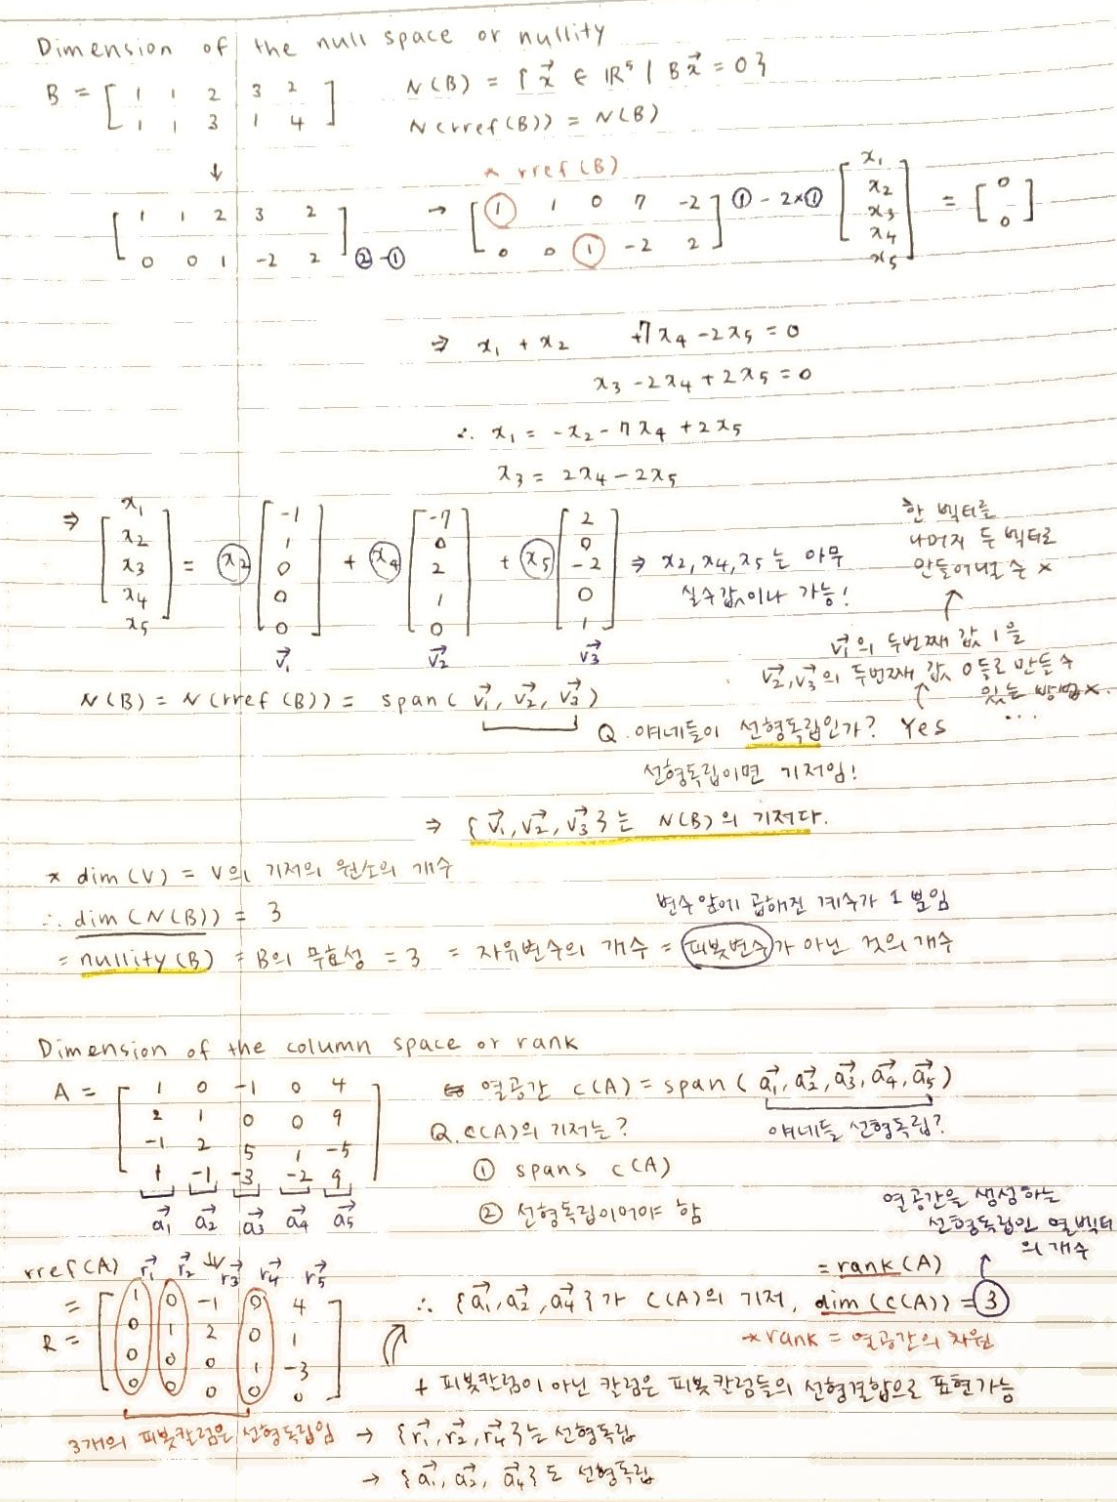 Dimension of the null space or nullity
B = [ 1 1 2 3 2 ; 1 1 3 1 4 ]
N(B) = { x⃗ ∈ ℝ⁵ | Bx⃗ = 0 }
N(rref(B)) = N(B)
↓
* rref(B)
[ 1 1 2 3 2 ; 0 0 1 -2 2 ] ②-① → [ 1 1 0 7 -2 ; 0 0 1 -2 2 ] ① - 2×① [ x₁ x₂ x₃ x₄ x₅ ] = [ 0 0 ]
⇒ x₁ + x₂ +7x₄ -2x₅ = 0
x₃ -2x₄ + 2x₅ = 0
∴ x₁ = -x₂ - 7x₄ + 2x₅
x₃ = 2x₄ - 2x₅
⇒ [ x₁ x₂ x₃ x₄ x₅ ] = x₂ [ -1 1 0 0 0 ] + x₄ [ -7 0 2 1 0 ] + x₅ [ 2 0 -2 0 1 ] ⇒ x₂, x₄, x₅는 아무
실수값이나 가능!
v₁⃗ v₂⃗ v₃⃗
한 벡터를
나머지 두 벡터로
만들어낼 수 ×
↑
v₁⃗의 두번째 값 1을
v₂⃗, v₃⃗의 두번째 값 0들로 만들 수
있는 방법×.
...
N(B) = N(rref(B)) = span( v₁⃗, v₂⃗, v₃⃗ )
Q. 얘네들이 선형독립인가? Yes
선형독립이면 기저임!
⇒ { v₁⃗, v₂⃗, v₃⃗ }는 N(B)의 기저다.
* dim(V) = V의 기저의 원소의 개수
∴ dim(N(B)) = 3
변수앞에 곱해진 계수가 1 뿐임
= nullity(B) = B의 무효성 = 3 = 자유변수의 개수 = 피봇변수가 아닌 것의 개수
Dimension of the column space or rank
A = [ 1 0 -1 0 4 ; 2 1 0 0 9 ; -1 2 5 1 -5 ; 1 -1 -3 -2 9 ]
a₁⃗ a₂⃗ a₃⃗ a₄⃗ a₅⃗
열공간 C(A) = span( a₁⃗, a₂⃗, a₃⃗, a₄⃗, a₅⃗ )
얘네들 선형독립?
Q. C(A)의 기저는?
① spans C(A)
② 선형독립이어야 함
열공간을 생성하는
선형독립인 열벡터
의 개수
rref(A) r₁⃗ r₂⃗ ↓ r₃⃗ r₄⃗ r₅⃗
= R = [ 1 0 -1 0 4 ; 0 1 2 0 1 ; 0 0 0 1 -3 ; 0 0 0 0 0 ]
= rank(A)
∴ { a₁⃗, a₂⃗, a₄⃗ }가 C(A)의 기저, dim(C(A)) = 3
* rank = 열공간의 차원
+ 피봇칼럼이 아닌 칼럼은 피봇칼럼들의 선형결합으로 표현가능
3개의 피봇칼럼은 선형독립임 → { r₁⃗, r₂⃗, r₄⃗ }는 선형독립
→ { a₁⃗, a₂⃗, a₄⃗ }도 선형독립